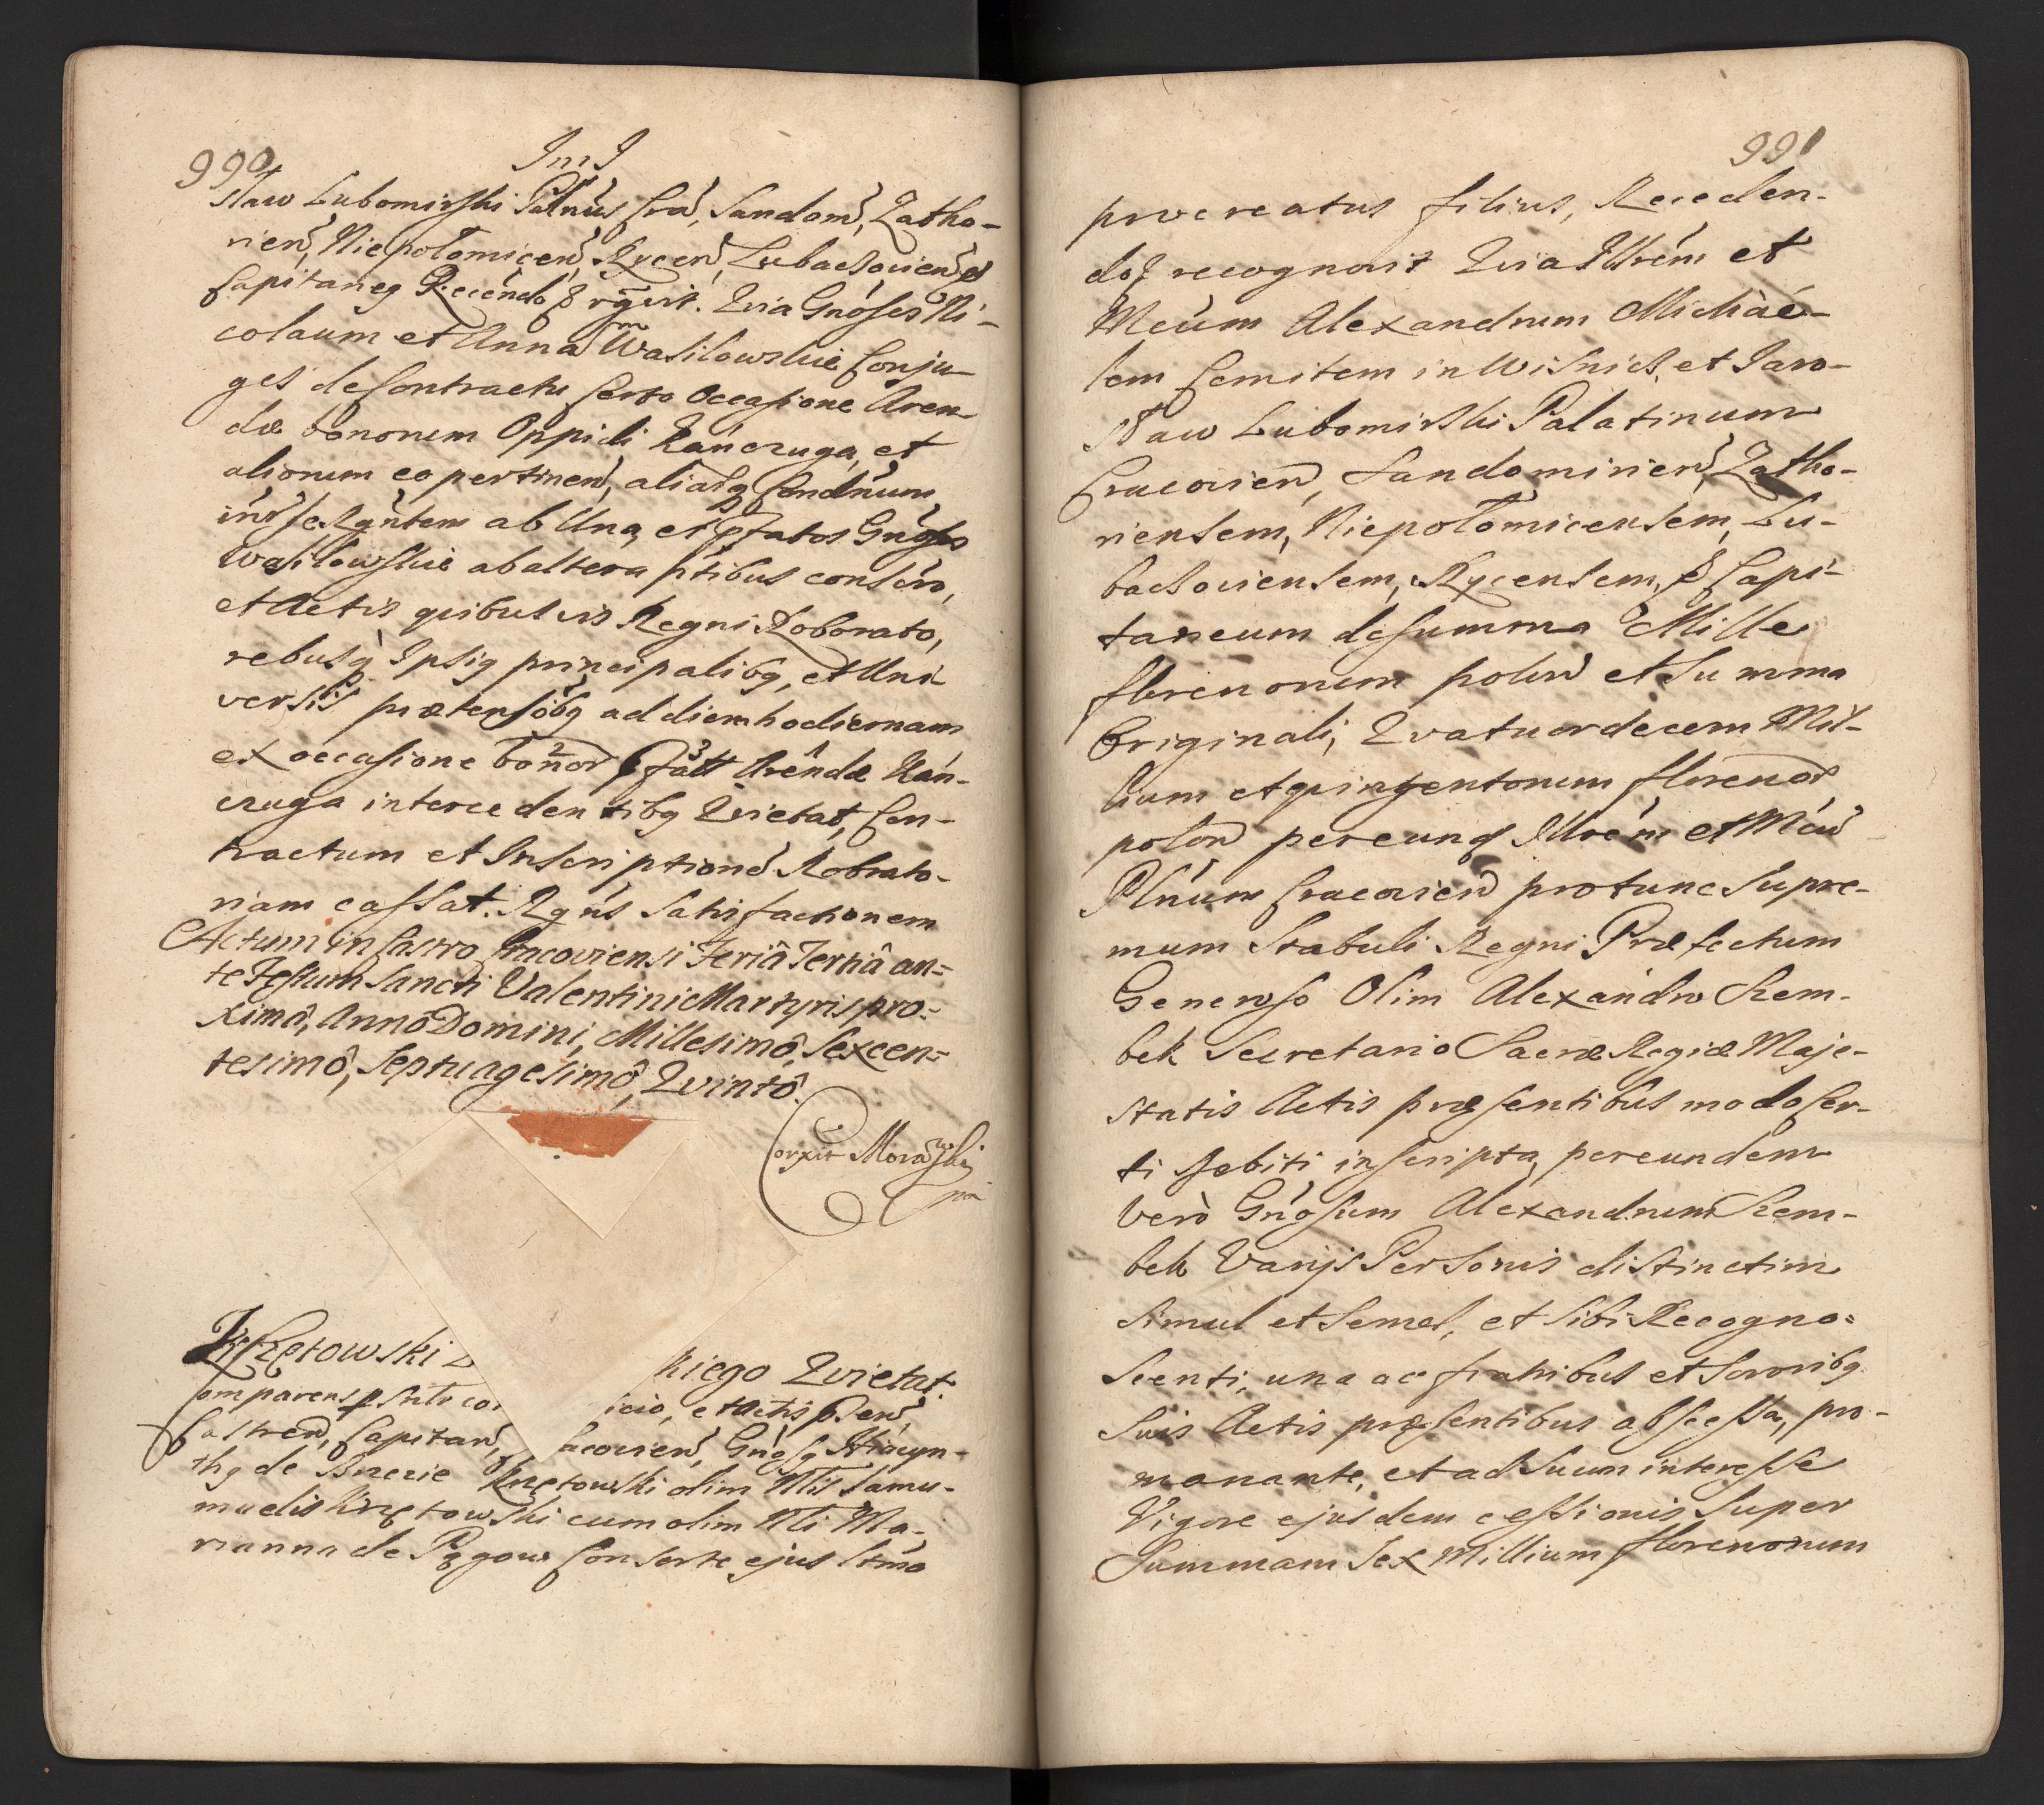 990 Inn J
staw Lubomirski Palnus Cra, Sandom, Zatho-
rien, Niepołomicen, Rycen, Lubaczovien &
Capitaneq Recendo & rgvit. Quia Gnoses Ni-
colaum et Annam Wasilowskie Conju-
ges de Contractu Certo Occasione Aren
dæ bonorum Oppidi Kánczuga, et
aliorum eo pertinen, aliasq Cendnum
int se Rgntem ab Una, et pfatos Gnoses
Wasilowskie ab altera ptibus conten,
et Actis quibusvis Regni Roborato,
rebusq Ipsiq principalibq, et Uni
versis prætensöbq ad diem hodiernam
ex occasione bonor pfatt Arendæ Kán-
czuga intercedentibq Quietat, Con-
tractum et Inscriptione Robrato-
riam cassat. Rgns Satisfactionem
Actum in Castro Cracoviensi Feriâ Tertiâ an=
te Festum Sancti Valentini Martyris pro=
ximô, Annô Domini, Millesimô, Sexcen=
tesimô, Septuagesimô, Qvintô.
Corxit Morawski
mp
Krzętowski
kiego Quietat.
Comparens psnlr co icio, et Actis psen,
Castren, Capitan, acovien, Gnosq Hiacyn-
thq de Brzezie Krzętowski olim Mli Samu-
muelis Krzętowski cum olim Mli Ma-
rianna de Pągow Consorte ejus ltma
991
procreatus filius, Receden-
do & recognovit Quia Illrem et
Mcum Alexandrum Michaé-
lem Comitem in Wisnicz, et Jaro-
staw Lubomirski Palatinum
Cracovien, Sandomirien, Zatho-
riensem, Niepołomicensem, Lu-
baczoviensem, Rycensem, & Capi-
taneum de summa Mille
florenorum polon et Summa
Originali, Quatuordecem Mil-
lium et quingentorum florenor
polon per eund Illrem et Mcum
Plnum Cracovien pro tunc Supre-
mum Stabuli Regni Præfectum
Generoso Olim Alexandro Szem-
bek Secretario Sacræ Regiæ Maje-
statis Actis præsentibus modo Cer-
ti Debiti inscripta, per eundem
Verò Gnosum Alexandrum Szem-
bek Varijs Personis distinctim
Simul et Semel, et Sibi Recogno=
scenti, una ac fratribus et Sororibq
Suis Actis præsentibus ab Cessa, pro-
manante, et ad Suum interesse
Vigore ejusdem cessionis Super
Summam Sex Millium florenorum